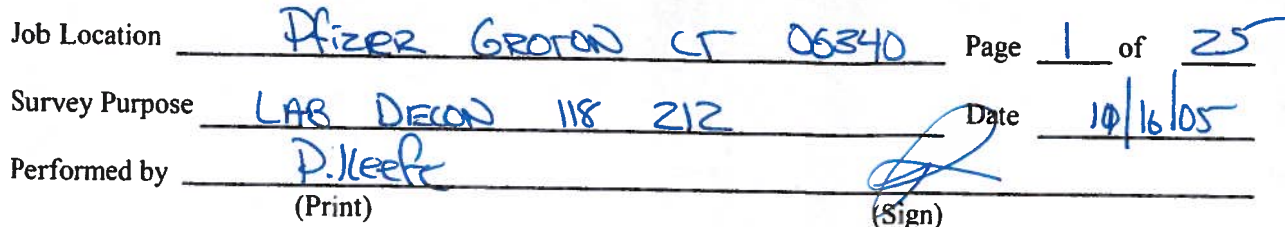 Job Location Pfizer GROTON CT 06340 Page 1 of 25
Survey Purpose LAB DECON 118 212 Date 10/16/05
Performed by P. Keefe
(Print) (Sign)